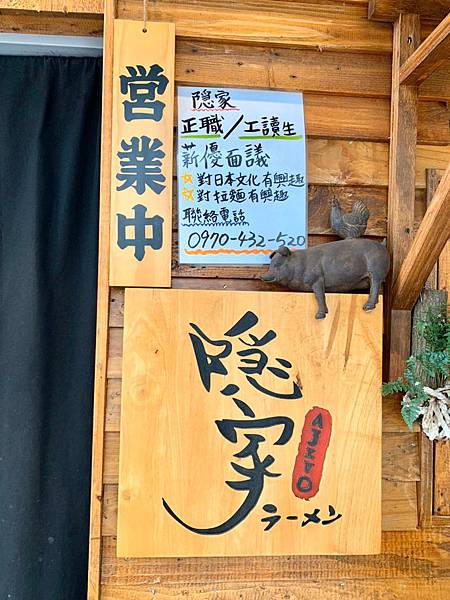 営業中
隱家
正職/工讀生
薪優面議
☆對日本文化有興趣
☆對拉麵有興趣
聯絡電話
0970-432-520
隠家
AJITO
ラーメン